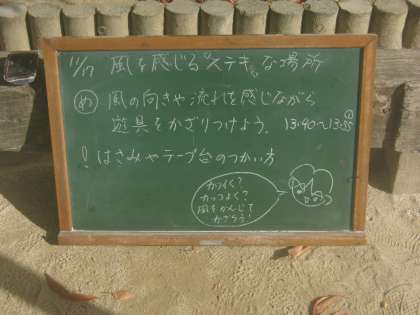 11/17 風を感じる"ステキ"な場所
め 風の向きや流れを感じながら
遊具をかざりつけよう。 13:40〜13:55
! はさみやテープ台のつかい方
カワイク?
カッコよく?
風をかんじて
かざろう!